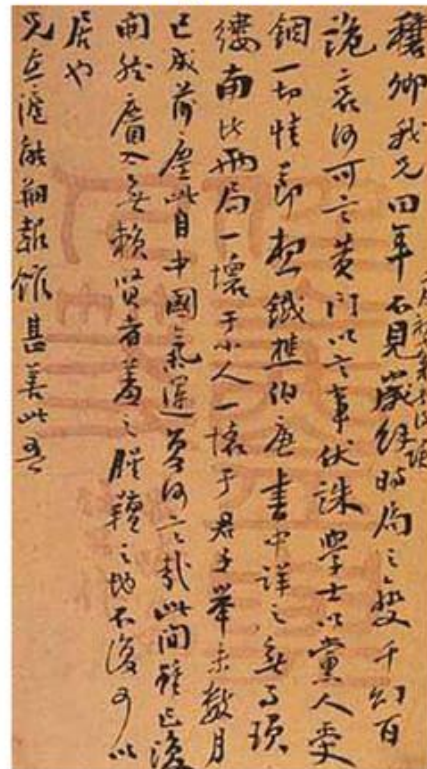 穰卿我兄四年不見歲余時局之變千幻百
詭哀何可言黃門以言事伏誅學士以黨人受
錮一切情節想鐵樵伯唐書中詳之無事瑣
縷南北兩局一壞于小人一壞于君子舉未數月
已成前塵此自中國氣運莫何言哉此間雖已復
開然麕入無賴賢者羞之腥羶之地不復可以
居也
兄在滬能創報館甚善此吾